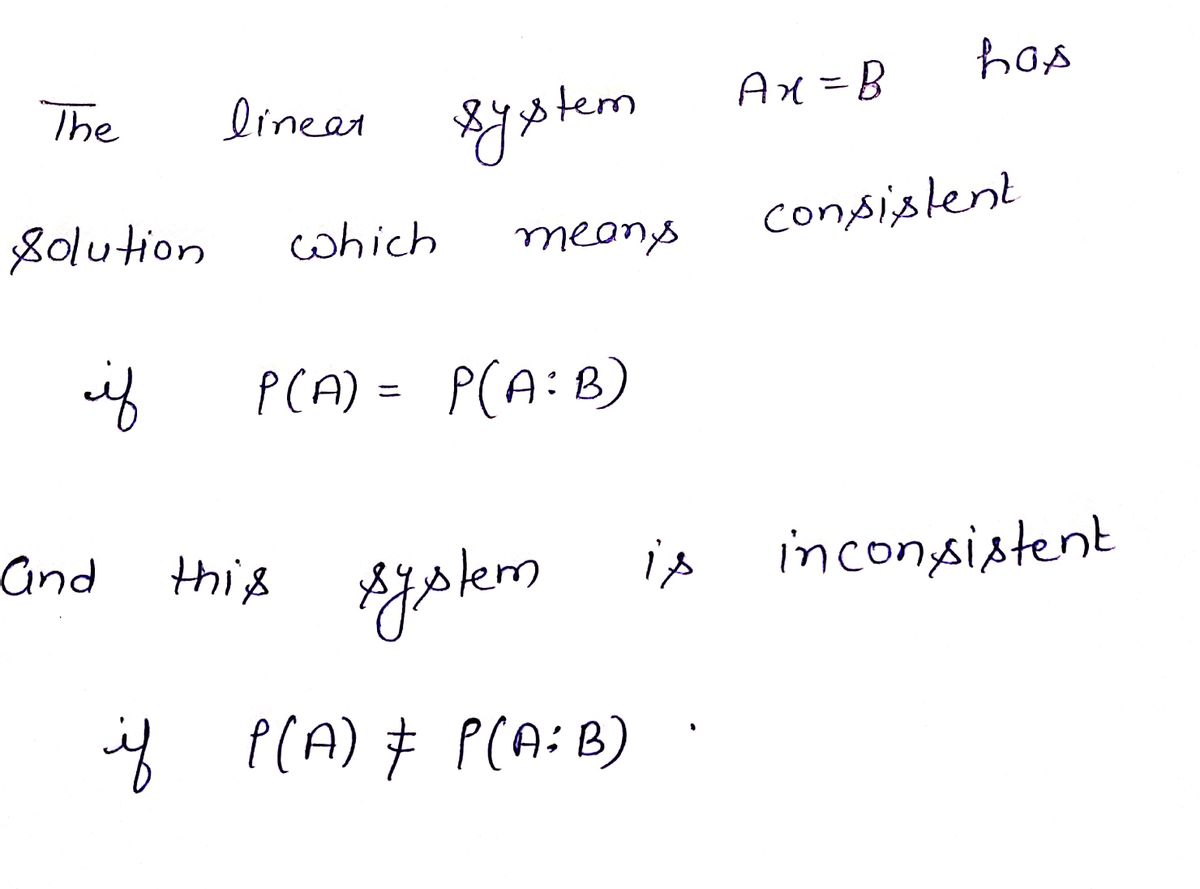 The linear system Ax = B has
solution which means consistent
if ρ(A) = ρ(A:B)
and this system is inconsistent
if ρ(A) ≠ ρ(A:B).